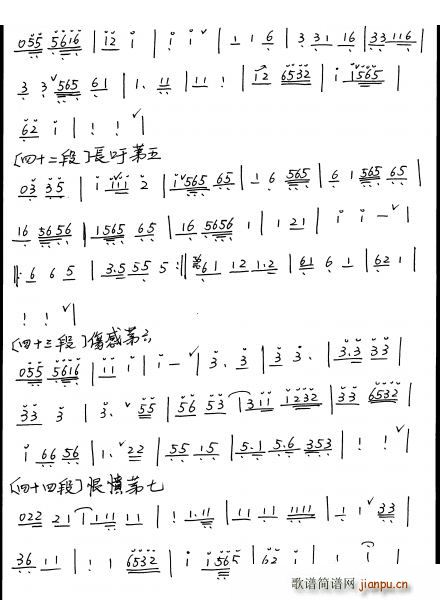 055 5616 | i2 i | i i | 1 1 6 | 3 31 16 | 33116 |
3 3 565 61 | 1. 11 | 11 1 | i2 6532 | i 1565 |
62 i | 1 1 |
[四十二段]長吁第五
03 35 | i iii 2 | i565 65 | 1 6 565 | 6 1565 65 |
16 5656 | 1565 65 | 16 5656 1 | 1 21 | i i — |
6 6 5 | 3.5 55 5 | 61 12 1.2 | 61 6 1 | 62 1 |
1 1 |
[四十三段]傷感第六
055 5616 | ii i | i — | 3. 3 | 3 3. | 3.3 33 |
33 3 | 3. 55 | 56 53 | 311 1232 | 33 6532 |
i 66 56 | 1. 22 | 55 15 | 5.1 5.6 353 | 1 1 |
[四十四段]恨憤第七
022 21 | 1 11 11 | 1 1.11 | 11 11 1111 | 1 1 33 |
36 11 | 1 1 6532 | i i565 | 62 i | 1 i |
歌谱简谱网 jianpu.cn